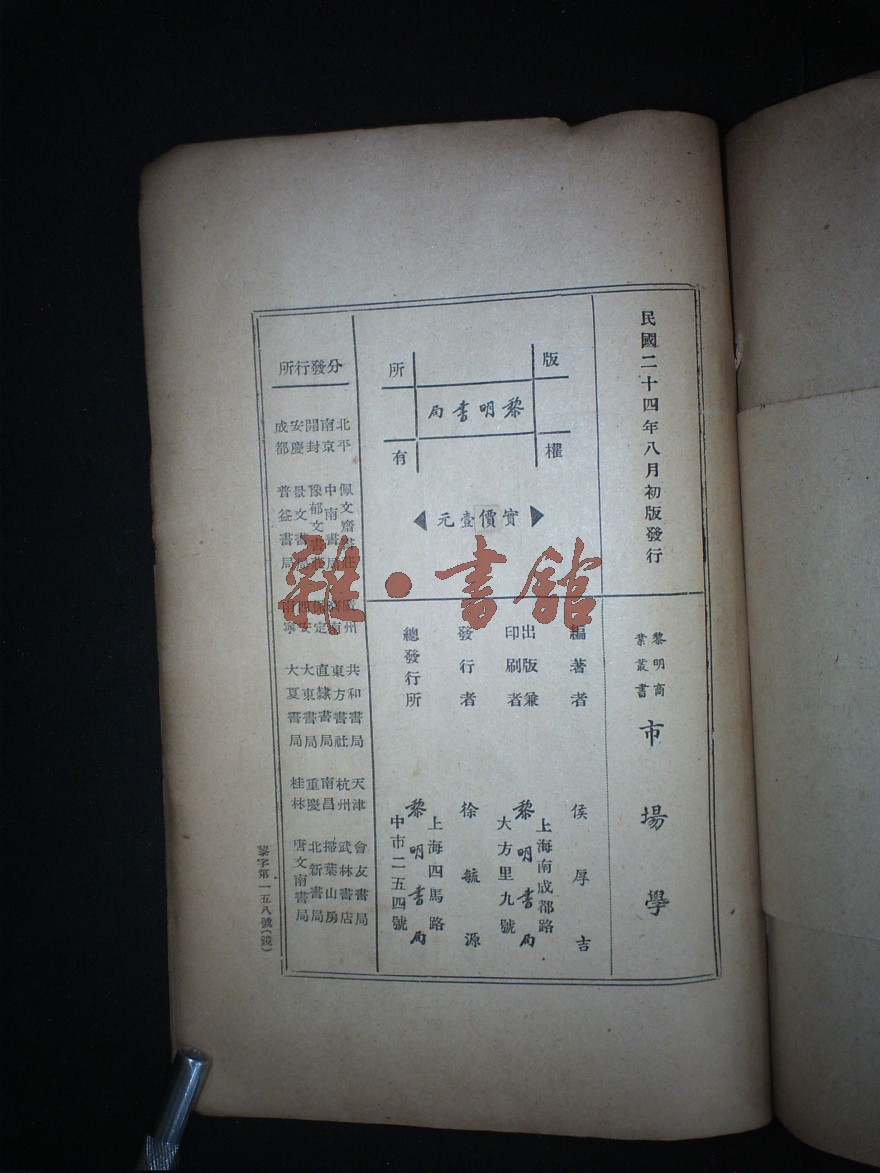 民國二十四年八月初版發行
黎明商
業叢書
市場學
版權
所有
黎明書局
實價壹元
編著者
侯厚吉
出版兼
印刷者
上海南成都路
黎明書局
大方里九號
發行者
徐毓源
總發行所
上海四馬路
黎明書局
中市二五四號
分發行所
北平
佩文齋書莊
南京
中南書局
開封
豫郁文書莊
安慶
景文書局
成都
普益書局
廣州
共和書局
濟南
東方書社
保定
直隸書局
西安
大東書局
南寧
大夏書局
天津
會友書局
杭州
武林書店
南昌
掃葉山房
重慶
北新書局
桂林
唐文南書局
黎字第一五八號(鏡)
雜·書館